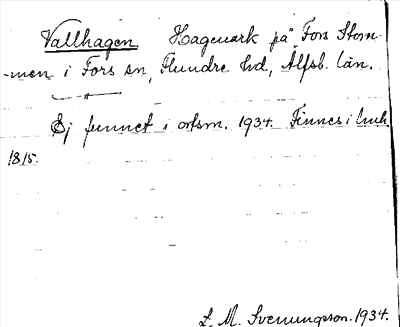 Vallhagen. Hagmark på Fors Stom-
-men i Fors sn, Flundre hd, Älfsb. län.
Ej funnet i ortsn. 1934. Finnes i
1815.
L. M. Svenungsson. 1934.